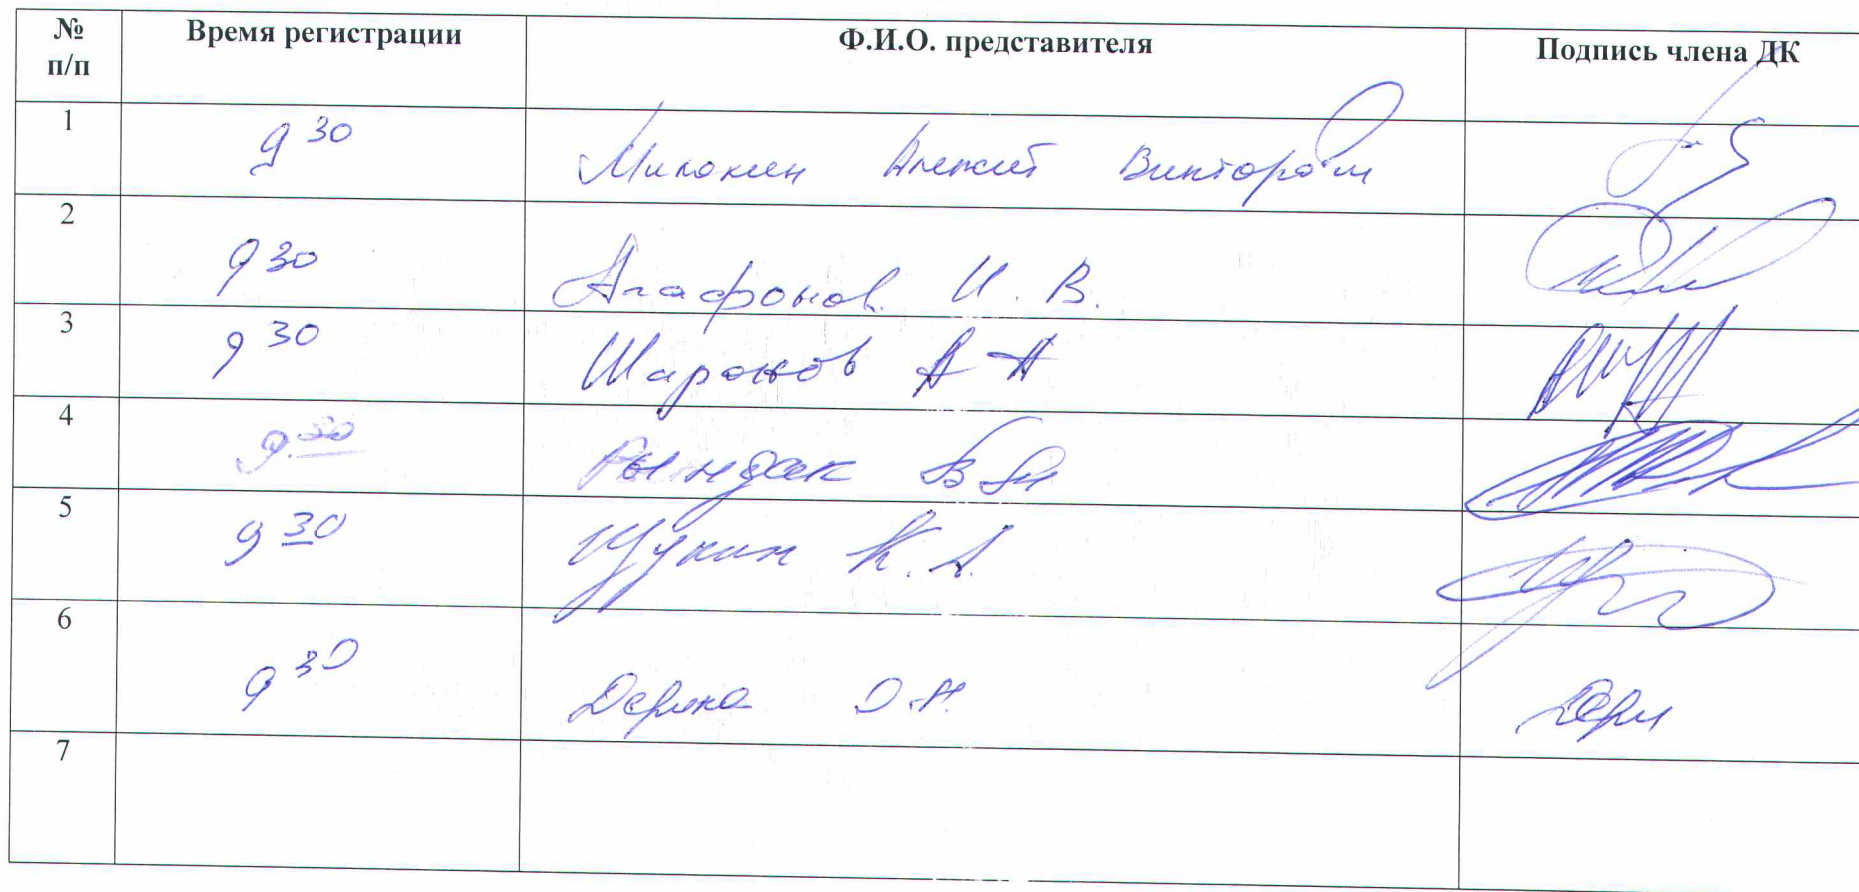 № п/п Время регистрации Ф.И.О. представителя Подпись члена ДК
1 9 30 Милохин Алексей Викторович
2 9 30 Агафонов И. В.
3 9 30 Шаронов А А
4 9.30 Рындак В
5 9 30 Щукин К. А.
6 9 30 О.Н.
7